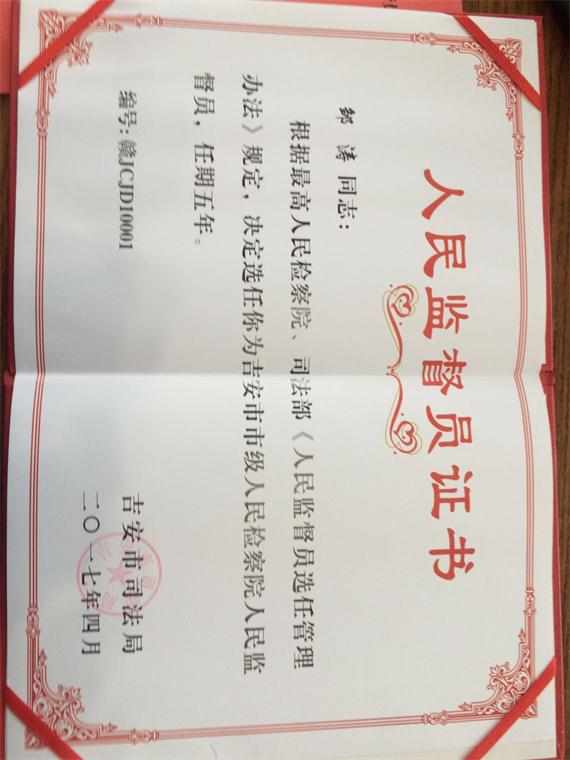 人民监督员证书
邹涛 同志：
根据最高人民检察院、司法部《人民监督员选任管理
办法》规定，决定选任你为吉安市市级人民检察院人民监
督员，任期五年。
编号：赣JCJD10001
吉安市司法局
二〇一七年四月